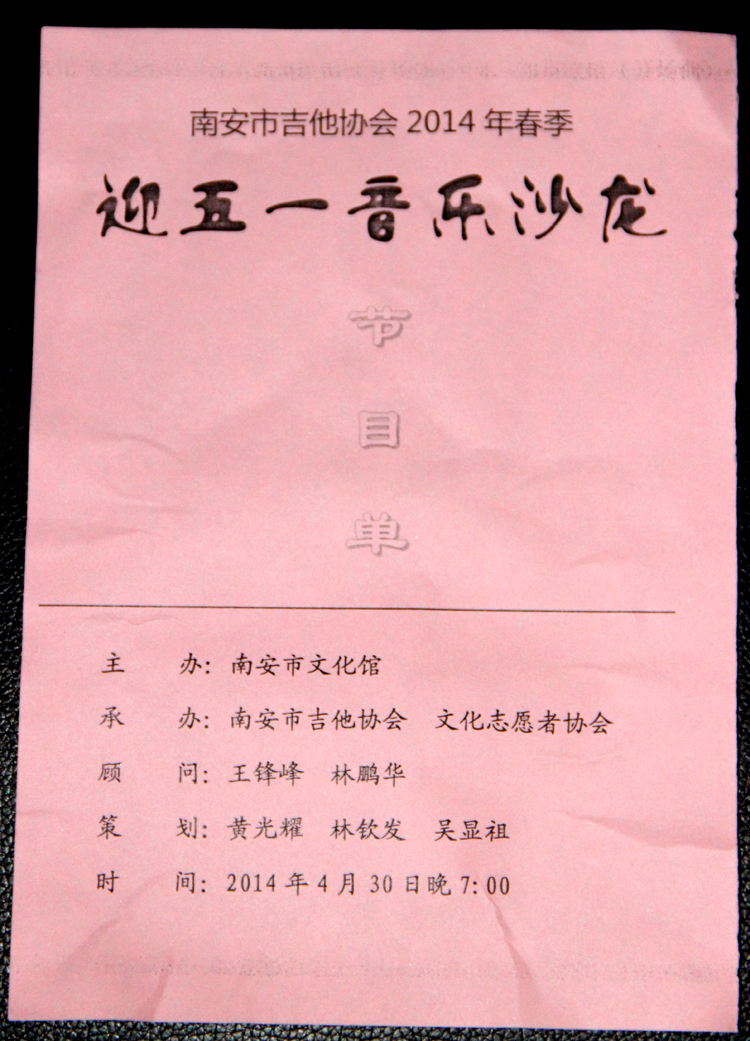 南安市吉他协会 2014 年春季
迎五一音乐沙龙
节
目
单
主 办：南安市文化馆
承 办：南安市吉他协会 文化志愿者协会
顾 问：王锋峰 林鹏华
策 划：黄光耀 林钦发 吴显祖
时 间：2014 年 4 月 30 日晚 7：00